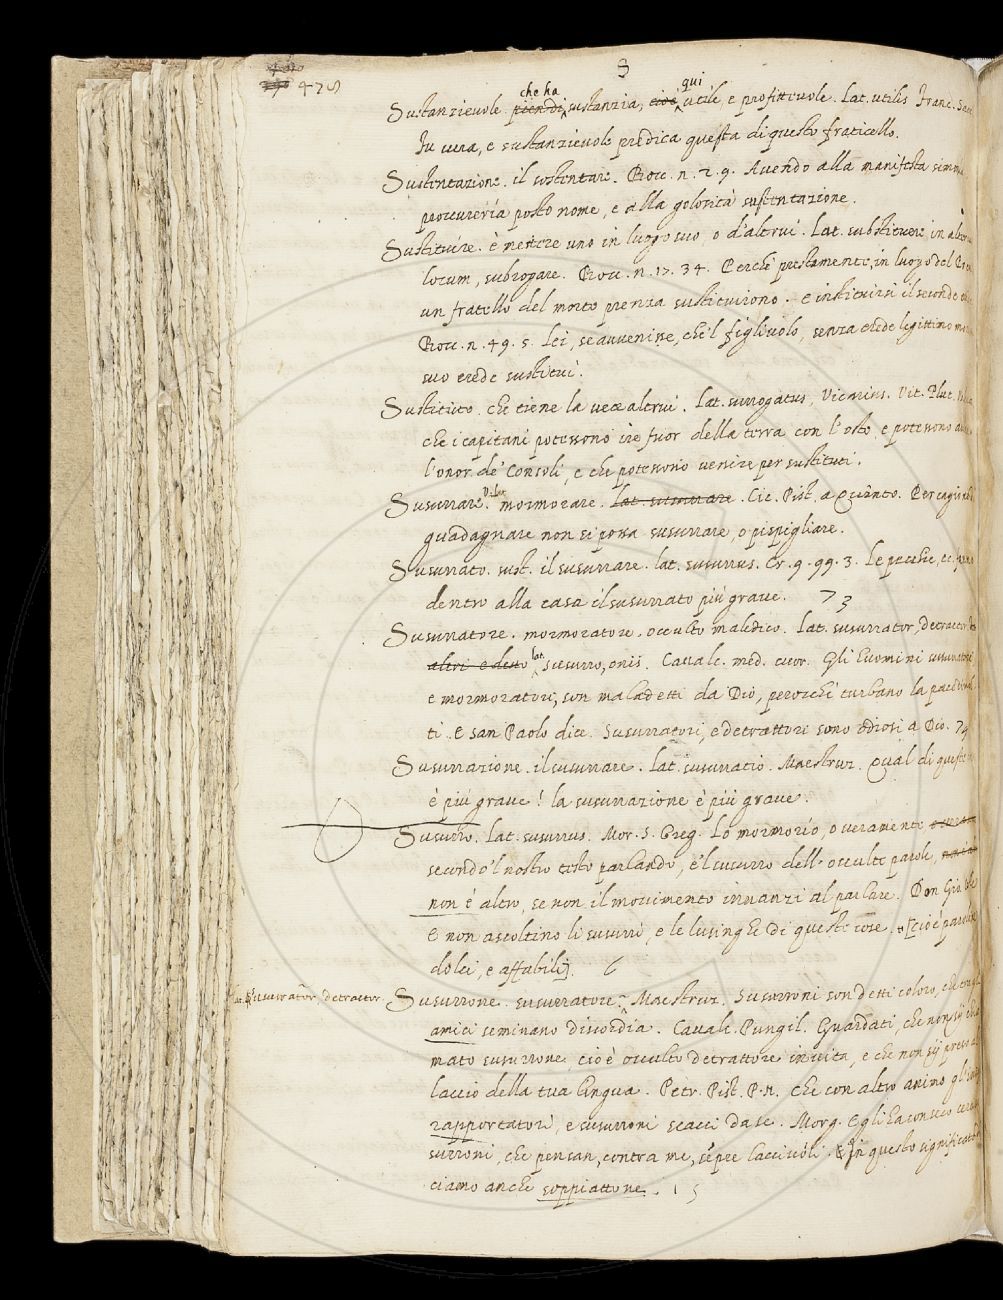 475
S
che ha qui
Sustanzievole. pien di sustanzia, cioè utile, e profittevole. Lat. utilis Franc. Sacc.
Tu vera, e sustanzievole predica questa di questo fraticello.
Sustentazione. il sostentare. Bocc. n. 2. 9. Avendo alla manifesta simonia
procureria posto nome, e alla golosità sustentazione.
Sustituire. è mettere uno in luogo suo, o d'altrui. Lat. substituere, in alterius
locum, subrogare. Bocc. n. 17. 34. Perchè prestamente, in luogo del
un fratello del morto prenza sustituirono. e instituirsi il secondo
Bocc. n. 49. 5. Lei, se avvenisse, che'l figlivolo, senza erede legittimo
suo erede sustituì.
Sustituto. che tiene la vece altrui. Lat. surrogatus, Vicarius. Vit. Plut.
che i capitani potessono ire fuor della terra con l'oste, e potessono
l'onor de' Consoli, e che potessono venire per sustituti.
Susurrare. mormorare. Lat. susurrare. Cic. Pist. a Quinto. Per cagion di
guadagnare non si possa susurrare, o pispigliare.
Susurrato. sust. il susurrare. lat. susurrus. Cr. 9. 99. 3. Le pecchie, ec.
dentro alla casa il susurrato più grave. 73
Susurratore. mormoratore. occulto maledico. Lat. susurrator, detractor
altri e detto lat. susurro, onis. Cavalc. med. cuor. Gli huomini susurratori
e mormoratori, son maladetti da Dio, perocchè turbano la pace di
ti. E san Paolo dice. Susurratori, e detrattori sono odiosi a Dio. 79
Susurrazione. il susurrare. lat. susurratio. Maestruz. Qual di queste
è più grave! la susurrazione è più grave.
Susurro. Lat. susurrus. Mor. S. Greg. Lo mormorio, o veramente
secondo'l nostro testo parlando, e'l susurro dell'occulte parole,
non è altro, se non il movimento innanzi al parlare. Don Gio.
E non ascoltino li susurri, e le lusinghe di queste cose. [cioè parole
dolci, e affabili].
Susurrator, detractor.
Susurrone. susurratore. Maestruz. Susurroni son detti coloro, che tra gl'
amici seminano discordia. Cavalc. Pungil. Guardati, che non sij
mato susurrone, cioè occulto detrattore in vita, e che non sij preso al
laccio della tua lingua. Petr. Pist. P. N. che con altro animo gl'
rapportatori, e susurroni scacci da se. Morg. Egli ha con seco
surroni, che pensan, contra me, sepre lacciuoli. E in questo significato
ciamo anche soppiattone. 15